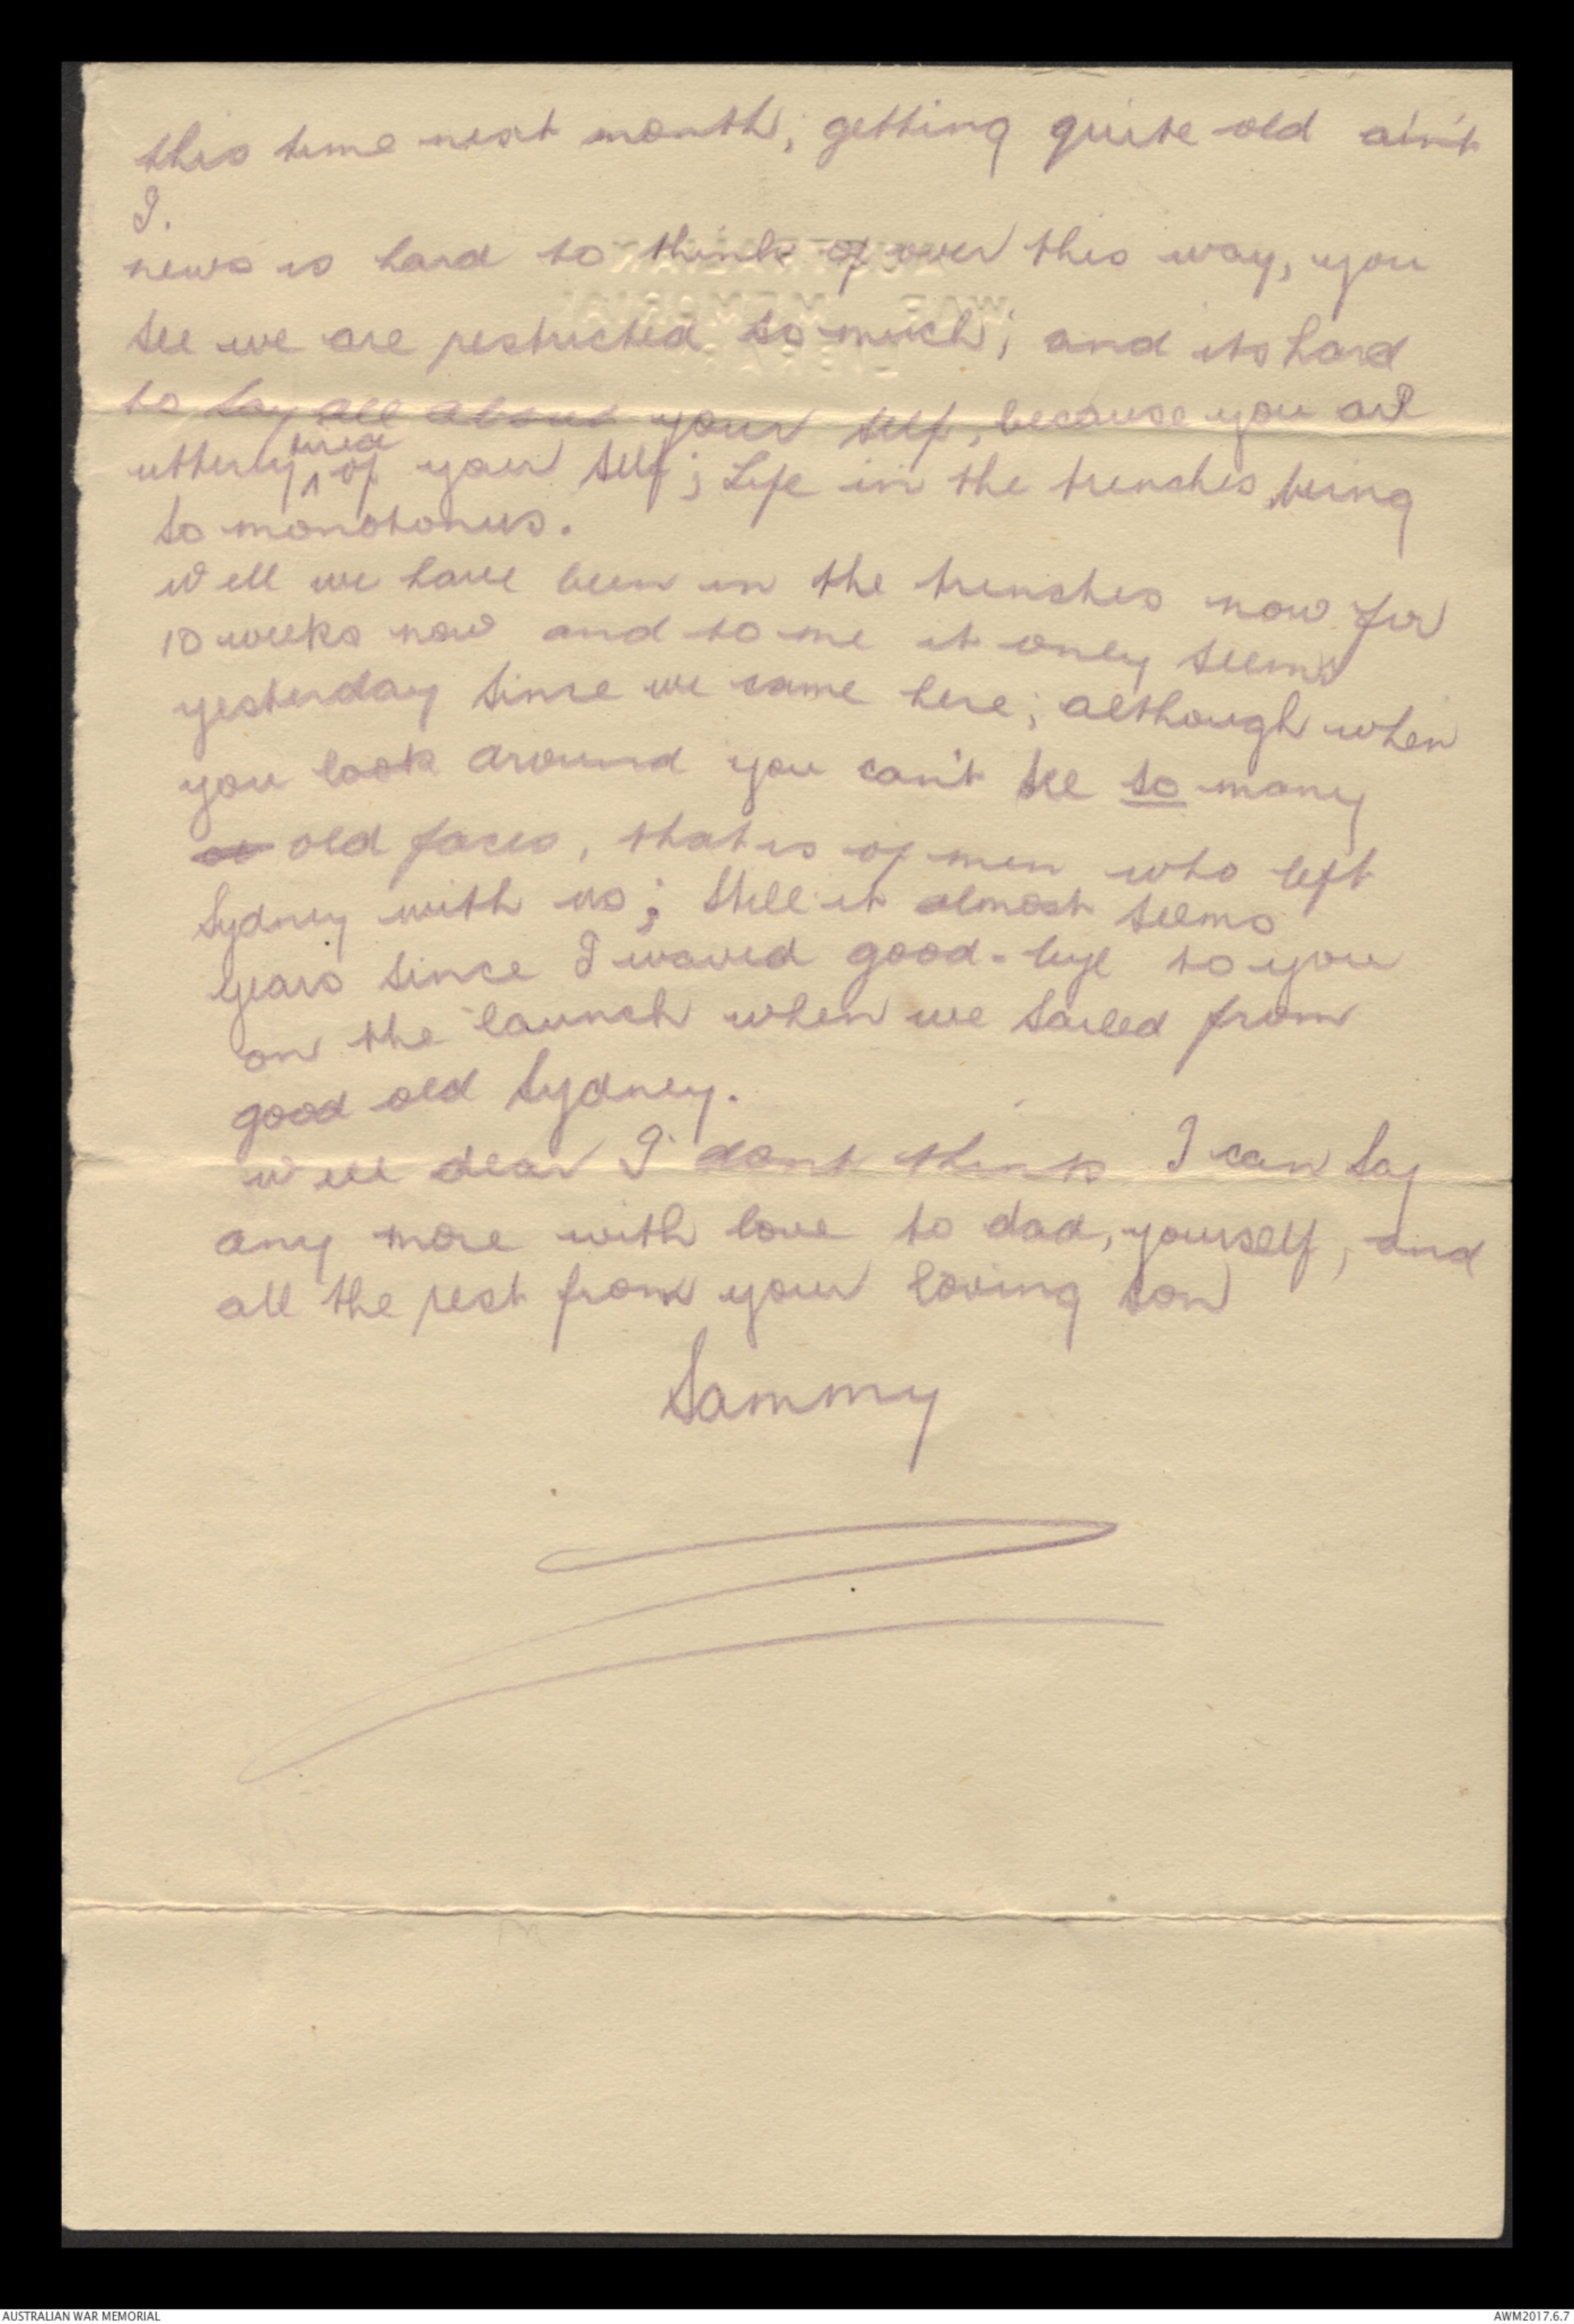 this time next month, getting quite old ain't
I.
news is hard to think of over this way, you
see we are restricted so much; and its hard
to say all about your self, because you are
utterly tired of your self; Life in the trenches being
so monotonus.
Well we have been in the trenches now for
10 weeks now and to me it only seems
yesterday since we came here; although when
you look around you can't see so many
ol old faces, that is of men who left
Sydney with us; still it almost seems
years since I waved good-bye to you
on the launch when we sailed from
good old Sydney.
Well dear I dont think I can say
any more with love to dad, yourself, and
all the rest from your loving son
Sammy
AUSTRALIAN WAR MEMORIAL
AWM2017.6.7